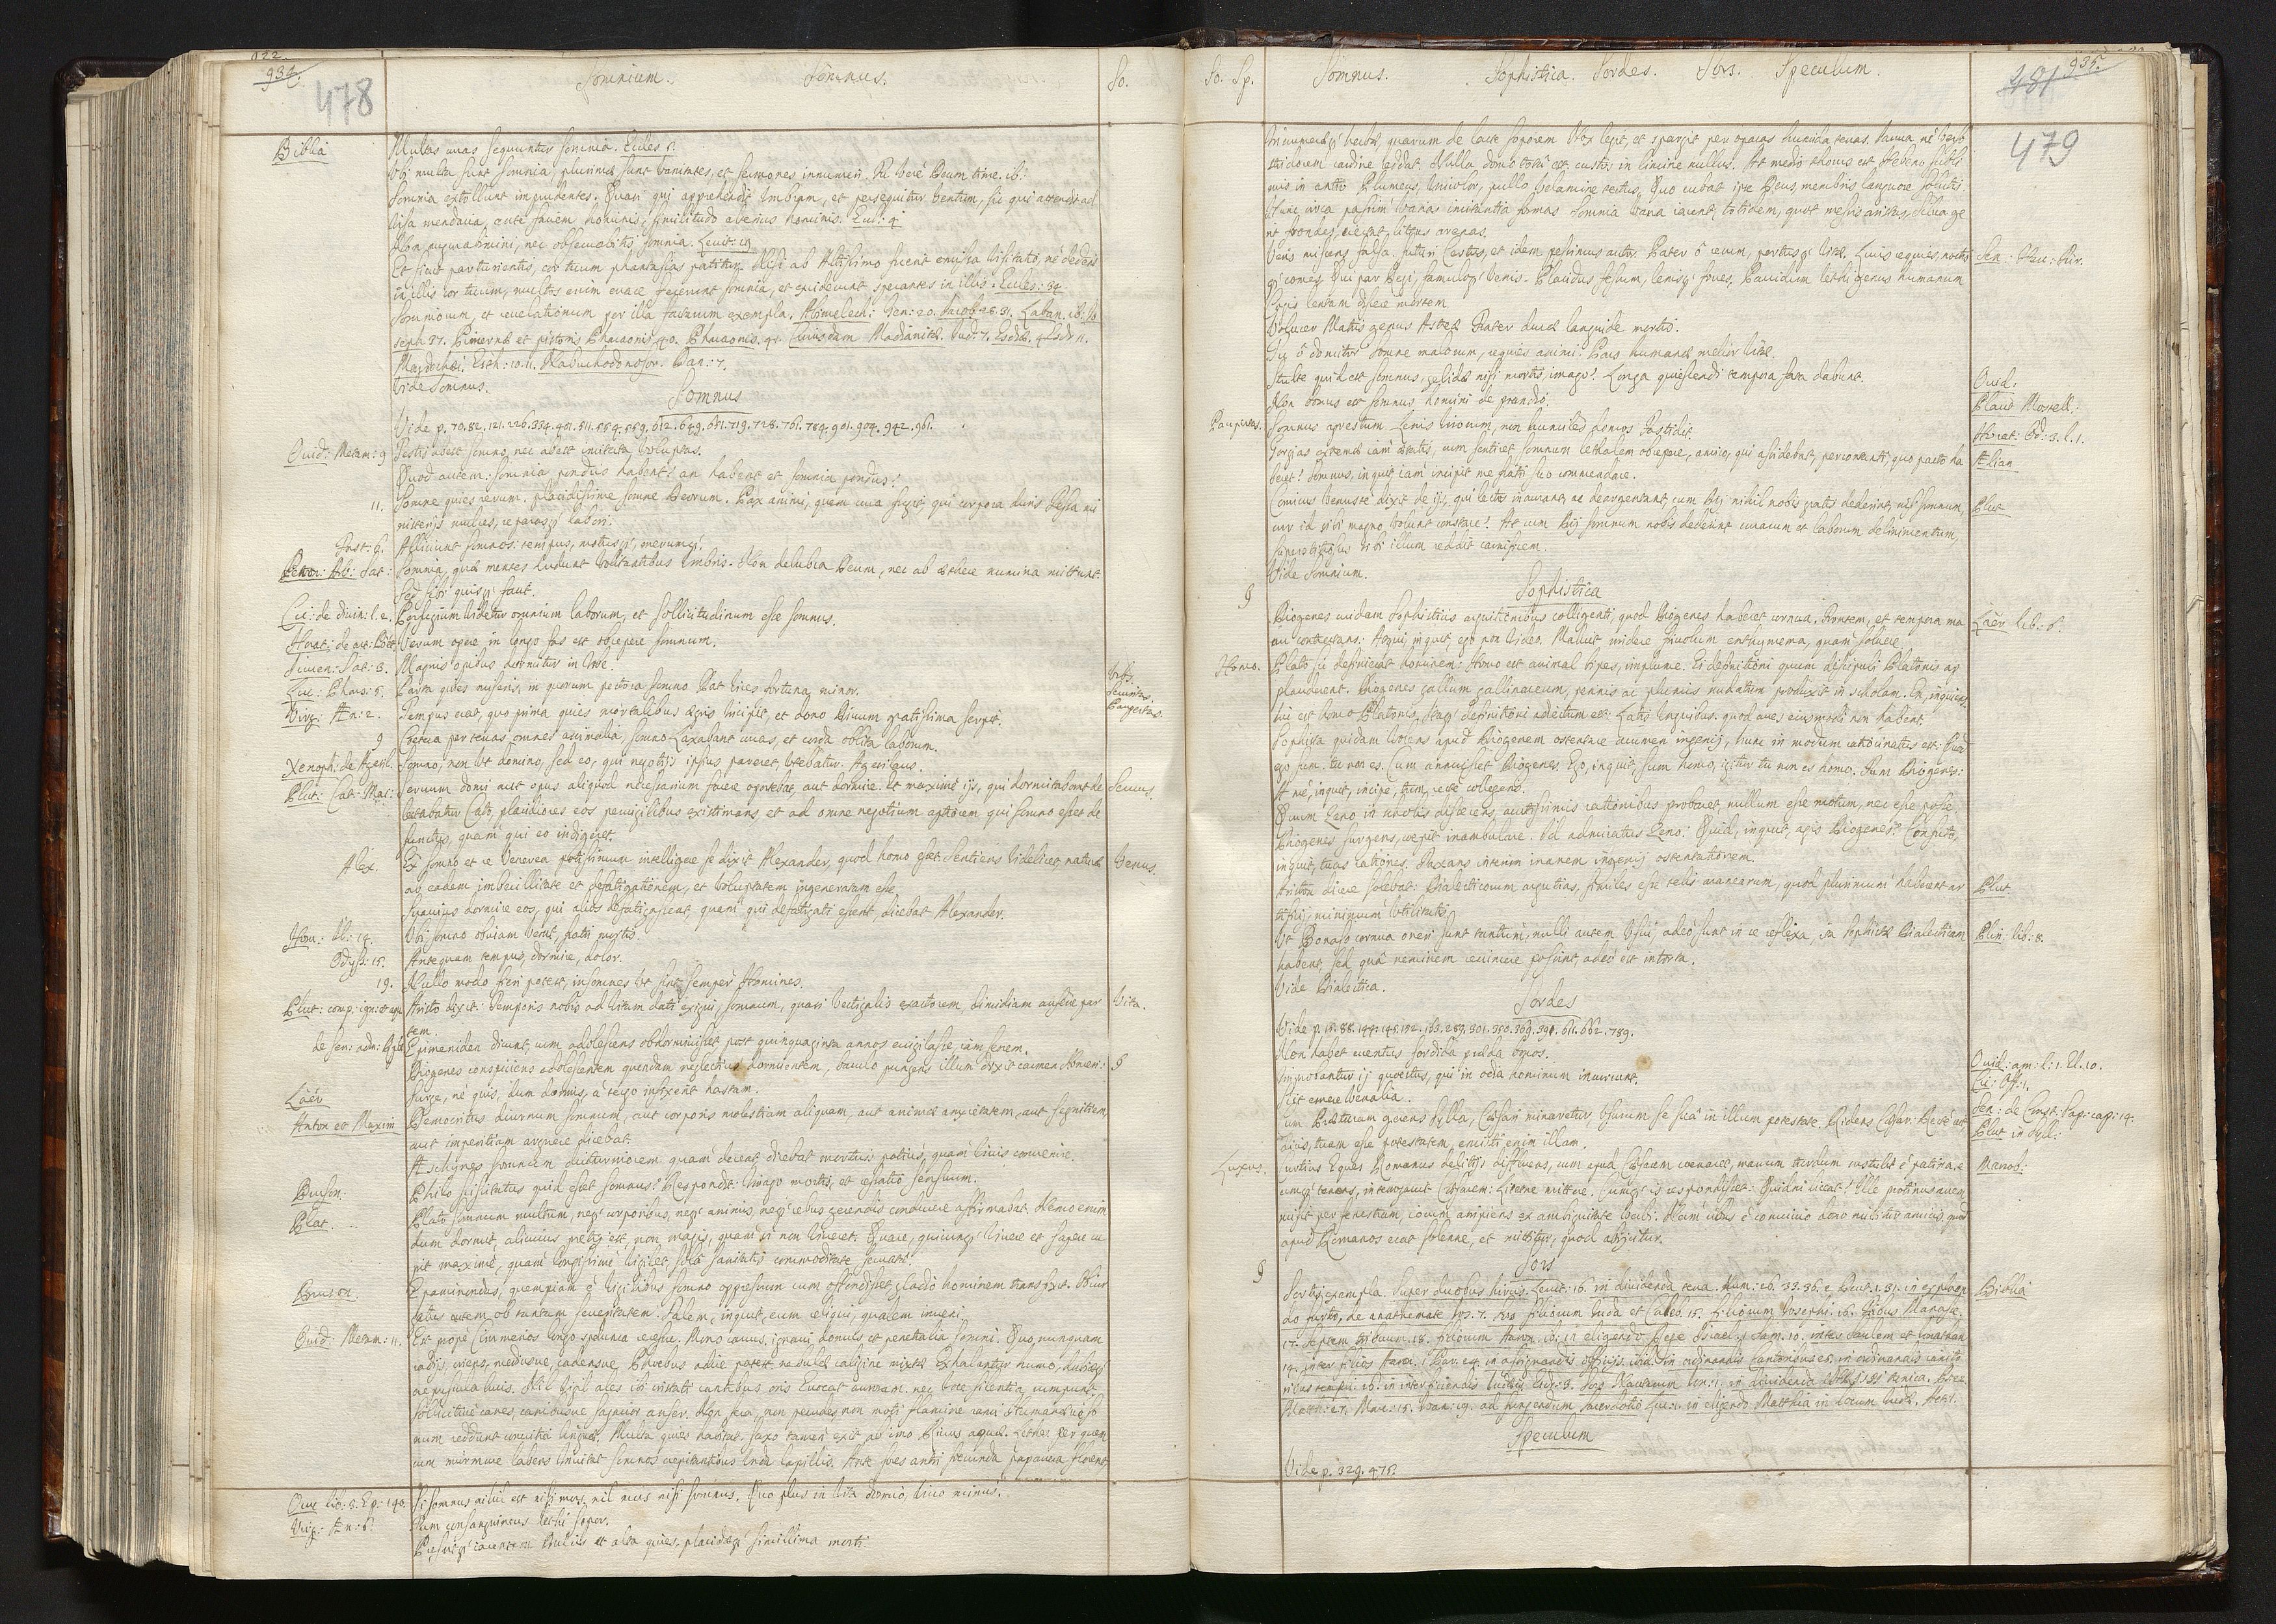 934.
478
Somnium. Somnus. So.
Biblia Multas curas sequuntur somnia. Eccles 5.
Ubi multa sunt somnia, plurimae sunt vanitates, et sermones innumeri. Tu vero Deum time. ib:
Somnia extollunt imprudentes. Quasi qui apprehendit umbram, et persequitur ventum, sic qui attendit ad
visa mendacia, ante faciem hominis, similitudo alterius hominis. Eccl:
Non augurabimini, nec observabitis somnia. Levit: 19
Et sicut parturientis, cor tuum phantasias patitur. Nisi ab Altissimo fuerit emissa visitatio, ne dederis
in illis cor tuum, multos enim errare fecerunt somnia, et exciderunt sperantes in illis. Eccles: 34.
Somniorum, et revelationum per illa factarum exempla. Abimelech: Gen: 20. Jacob. 28. 31. Laban. ib. Jo
seph 37. Pincernae et pistoris Pharaonis. 40. Pharaonis. 41. Cuiusdam Madianitae. Jud: 7.
Mardochaei. Esth: 10. 11. Nabuchodonosor. Dan: 7.
Vide Somnus.
Somnus
Vide p. 70. 82. 121. 226. 334. 401. 511. 554. 559. 612. 649. 651. 719. 728. 761. 784. 901. 904. 942. 961.
Ovid: Metam: 9 Testis abest somno, nec abest imitata voluptas.
Quod autem somnia pondus habent? an habent et somnia pondus?
11. Somne quies rerum, placidissime somne Deorum. Pax animi, quem cura fugit, qui corpora duris fessa mi
nisterijs mulces, reparasq' labori.
Fast: 6. Alliciunt somnos tempus, motusq', merumq'.
Petron: Arb: Sat: Somnia, quae mentes ludunt volitantibus umbris. Non delubra Deum, nec ab aethere numina mittunt.
Sed sibi quisq' facit.
Cic: de divin: l. 2. Perfugium videtur omnium laborum, et sollicitudinum esse somnus.
Horat: de art: Poët Verum opere in longo fas est obrepere somnum.
Juven: Sat: 3. Magnis opibus dormitur in Urbe.
Luc: Phars: 5. Parva quies miseris, in quorum pectora somno Dat vires fortuna minor.
Urbs. Securitas. Paupertas.
Virg: Aen: 2. Tempus erat, quo prima quies mortalibus aegris Incipit, et dono Divum gratissima serpit.
9 Caetera per terras omnes animalia, somno Laxabant curas, et corda oblita laborum.
Xenoph: de Agesil. Somno, non ut domino, sed eo, qui negotijs ipsius pareret, utebatur Agesilaus.
Plut: Cat: Mai: Servum domi aut opus aliquod necessarium facere oportebat, aut dormire. Et maxime ijs, qui dormitabant de
Servus.
lectabatur Cato, placidiores eos pervigilibus existimans et ad omne negotium aptiorem qui somno esset de
functus, quam qui eo indigeret.
Alex. Ex somno et re Venerea potissimum intelligere se dixit Alexander, quod homo esset sentiens videlicet naturae
Venus.
ab eadem imbecillitate et defatigationem, et voluptatem ingeneratam esse.
Suavius dormire eos, qui alios defatigassent, quam qui defatigati essent, dicebat Alexander.
Hom: Il: 14. Ubi somno obviam venit, fratri mortis.
Odyss: 15. Antequam tempus, dormire, dolor.
19. Nullo modo fieri potest, insomnes ut sint semper Homines.
Plut: comp: ign: et aq. Aristo dixit: Temporis nobis ad vitam dati exigui, somnum, quasi vectigalis exactorem, dimidiam auferre par
Vita.
tem.
de sen: adm: Epimeniden dicunt, cum adolescens obdormivisset post quinquaginta annos evigilasse, iam senem.
Diogenes conspiciens adolescentem quendam neglectius dormientem, baculo pungens illum dixit carmen Homeri:
§
Laër Surge, ne quis, dum dormis, a tergo infixerit hastam.
Anton et Maxim Democritus diurnum somnum, aut corporis molestiam aliquam, aut animae anxietatem, aut segnitiem
aut imperitiam arguere dicebat.
Aeschynes somnum diuturniorem quam deceat, dicebat mortuis potius, quam vivis convenire.
Bruson: Philo sciscitatus quid esset somnus? Respondit: Imago mortis, et cessatio sensuum.
Plat. Plato somnum multum, neq' corporibus, neq' animis, neq' rebus gerendis conducere affirmabat. Nemo enim
dum dormit, alicuius pretij est, non magis, quam si non viveret. Quare, quicunq' vivere et sapere cu
pit maxime, quam longissime vigilet, sola sanitatis commoditate servata.
Bruson. Epaminondas, quempiam e vigilibus somno oppressum cum offendisset, gladio hominem transfixit. Obiur
gatus autem ob tantam severitatem. Talem, inquit, eum reliqui, qualem inveni.
Ovid: Metam: 11. Est prope Cimmerios longo spelunca recessu. Mons cavus, ignavi domus et penetralia somni. Quo nunquam
radijs, oriens, mediusve, cadensve Phoebus adire potest, nebulae caligine mixtae Exhalantur humo, dubiaeq'
crepuscula lucis. Non vigil ales ibi cristati cantibus oris Evocat auroram, nec voce silentia rumpunt,
sollicitive canes, canibusve sagacior anser. Non fera, non pecudes, non moti flamine rami Humanaeve so
num reddunt convitia linguae. Muta quies habitat. Saxo tamen exit ab imo Rivus aquae Lethes per quem
cum murmure labens Invitat somnos crepitantibus unda lapillis. Ante fores antri foecunda papavera florent
Owe lib: 3. Ep: 140. Si somnus nihil est nisi mors, nil mors nisi somnus. Quo plus in vita dormio, vivo minus.
Virg: Aen: 6. Tum consanguineus lethi sopor.
Dulcis et alta quies, placidaeq' simillima morti.
So. Sp. Somnus. Sophistica. Sordes. Sors. Speculum.
935.
481
479
Innumeraeq' herbae, quarum de lacte soporem Nox legit, et spargit per opacas humida terras. Ianua ne verso
stridorem cardine reddat. Nulla domo tota est, custos in limine nullus. At medio thorus est Hebeno subli
mis in antro Plumeus, unicolor, pullo velamine tectus, Quo cubat ipse Deus, membris languore solutis.
Hunc circa passim varias imitantia formas Somnia vana iacent, totidem, quot messis aristas, silva ge
rit frondes, eiectas littus arenas.
Veris miscens falsa. Futuri Certus, et idem pessimus auctor. Pater ô rerum, portusq' vitae. Lucis requies, noctis
Sen: Herc: Fur.
q' comes, Qui par Regi, famuloq' venis. Placidus fessum, lenisq' foves. Pavidum lethi genus humanum
Cogis lentam discere mortem.
Volucer Matris genus Astreae Frater durae languide mortis.
Tuq' ô domitor somne malorum, requies animi. Pars humanae melior vitae.
Stulte quid est somnus, gelidae nisi mortis imago? Longa quiescendi tempora fata dabunt.
Ovid.
Non bonus est somnus homini de prandio.
Plaut Mostell:
Pauperes. Somnus agrestium Lenis virorum, non humiles domos Fastidit.
Horat: Od: 3. l. 1.
Gorgias extremae iam aetatis, cum sentiret somnum lethalem obrepere, amico, qui assidebat, percontanti, quo pacto ha
Aelian
beret? Somnus, inquit iam incipit me fratri suo commendare.
Comicus venuste dixit de ijs, qui lectos inaurant, ac deargentant, cum Dij nihil nobis gratis dederint, nisi somnum,
Plut
cur id tibi magno volunt constare? At cum Dij somnum nobis dederint curarum et laborum delinimentum,
superstitiosus sibi illum reddit carnificem.
Vide Somnium.
Sophistica
§ Diogenes cuidam Sophisticis argutationibus colligenti, quod Diogenes haberet cornua. Frontem, et tempora ma
Laër lib: 6.
nu contrectans: Atqui, inquit, ego non video. Maluit ridere frivolum enthymema, quam solvere.
Homo. Plato sic definierat hominem: Homo est animal bipes, implume. Ei definitioni quum discipuli Platonis ap
plauderent. Diogenes gallum gallinaceum, pennis ac plumis nudatum produxit in scholam. En, inquiens,
hic est homo Platonis. Itaq' definitioni adiectum est: Latis unguibus. quod aves eiusmodi non habent.
Sophista quidam volens apud Diogenem ostentare acumen ingenij, hunc in modum ratiocinatus est: Quod
ego sum, tu non es. Cum annuisset Diogenes. Ego, inquit, sum homo, igitur tu non es homo. Tum Diogenes:
A me, inquit, incipe, tum, recte colligens.
Quum Zeno in scholis disserens, acutissimis rationibus probaret, nullum esse motum, nec esse posse
Diogenes surgens, coepit inambulare. Id admiratus Zeno: Quid, inquit, agis Diogenes? Confuto,
inquit, tuas rationes. Taxans interim inanem ingenij ostentationem.
Ariston dicere solebat: Dialecticorum argutias, similes esse telis aranearum, quod plurimum haberent ar
Plut
tificij, minimum utilitatis.
Ut Bonaso cornua oneri sunt tantum, nulli autem usui, adeo sunt in se reflexa, ita sophistae Dialecticam
Plin: lib: 8.
habent, sed qua neminem revincere possint, adeo est intorta.
Vide Dialectica.
Sordes
Vide p. 15. 88. 144. 145. 152. 163. 289. 301. 350. 369. 390. 611. 662. 789.
Non habet eventus sordida praeda bonos.
Ovid: am: l: 1. El. 10.
Improbantur ij quaestus, qui in odia hominum incurrunt.
Cic: Off: 1.
Scit emere venalia.
Sen: de Const: Sap: cap: 14.
Cum Praeturam gerens Sylla, Caesari minaretur, usurum se sua in illum potestate. Ridens Caesar: Recte ait
Plut in Syll:
dicis, tuam esse potestatem, emisti enim illam.
Luxus. Curtius Eques Romanus delitijs diffluens, cum apud Caesarem coenaret, macrum turdum sustulit è patina, e
Macrob:
umq' tenens, interrogavit Caesarem: Liceretne mittere. Cumq' is respondisset: Quidni liceat? Ille protinus avem
misit per fenestram, iocum arripiens ex ambiguitate verbi. Nam cibus è convivio dono mittitur amicis, quod
apud Romanos erat solenne, et mittitur, quod abijcitur.
Sors
§ Sortis exempla. Super duobus hircis. Levit. 16. in dividenda terra. Num: 26. 33. 36. Deut. 1. 31. in exploran
Biblia
do furto, de anathemate Jos. 7. Sors filiorum Juda et Caleb. 15. Filiorum Josephi. 16. Tribus Manasse.
17. Septem tribuum. 18. filiorum Aaron. ib. in eligendo Rege Israel. 1 Sam. 10. inter Saulem et Jonathan
14. inter filios Aaron. 1 Par. 24. in assignandis officijs. ibid: in ordinandis cantoribus 25. in ordinandis ianito
ribus templi. 26. in interficiendis Judaeis Esth: 3. Sors Nautarum Jon: 1. in dividenda tunica.
Matth: 27. Marc: 15. Joan: 19. ad fungendum sacerdotio Luc: 1. in eligendo Matthia in locum Judae. Act: 1.
Speculum
Vide p. 329. 475.